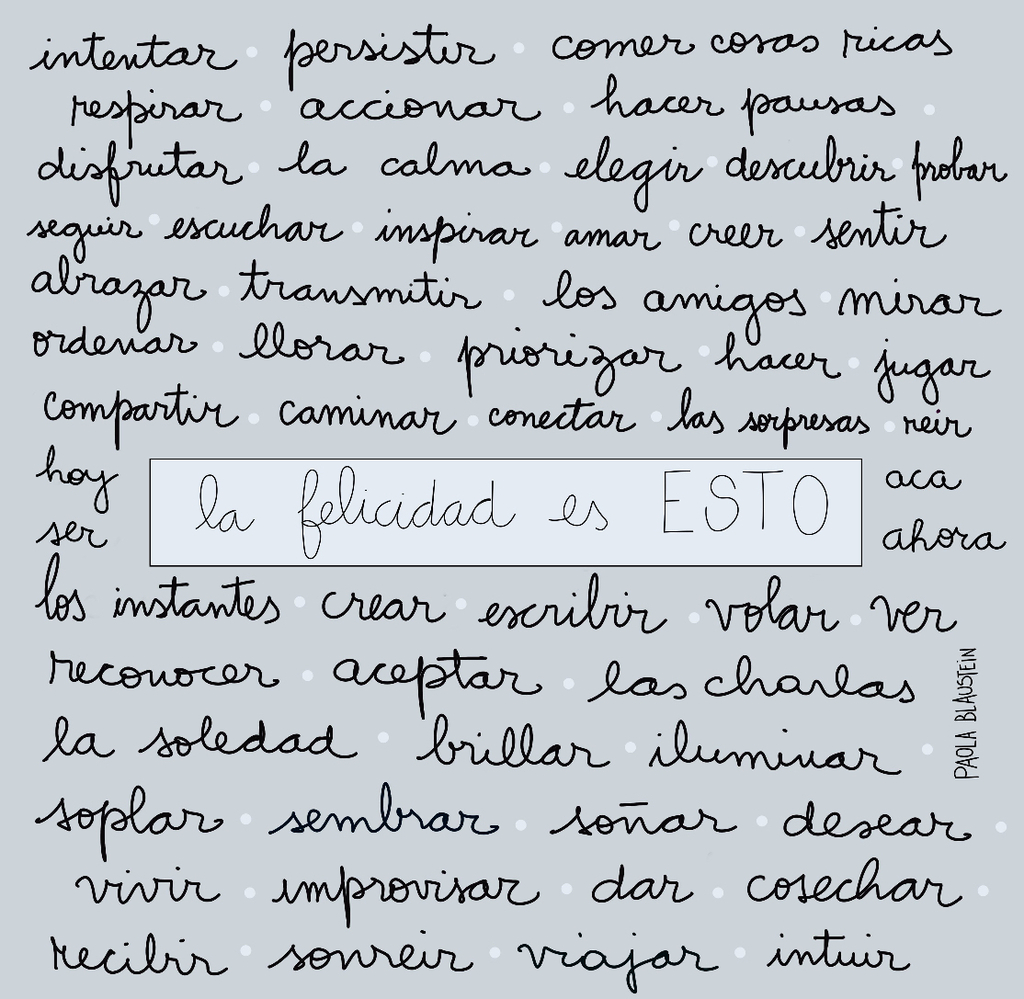 intentar · persistir · comer cosas ricas
respirar · accionar · hacer pausas ·
disfrutar · la calma · elegir · descubrir · probar
seguir · escuchar · inspirar · amar · creer · sentir
abrazar · transmitir · los amigos · mirar
ordenar · llorar · priorizar · hacer · jugar
compartir · caminar · conectar · las sorpresas · reir
hoy
aca
la felicidad es ESTO
ser
ahora
los instantes · crear · escribir · volar · ver
reconocer · aceptar · las charlas
la soledad · brillar · iluminar ·
soplar · sembrar · soñar · desear ·
vivir · improvisar · dar · cosechar ·
recibir · sonreir · viajar · intuir
PAOLA BLAUSTEIN